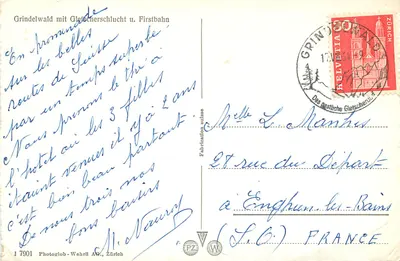 Grindelwald mit Gletscherschlucht u. Firstbahn
En promenade
sur les belles
routes de Suisse
par un temps superbe
Nous prenons le thé à
l'hotel où les 3 filles
étaient venues il y a 2 ans
c'est bien beau partout.
De nous trois nos
bons baisers
M.
I 7901 Photoglob - Wehrli AG., Zürich
Fabrication suisse
PZ W
GRINDELWALD
HELVETIA
30
ZÜRICH
Melle L.
28 rue du Départ
à Enghien-les-Bains
(S.O.) FRANCE